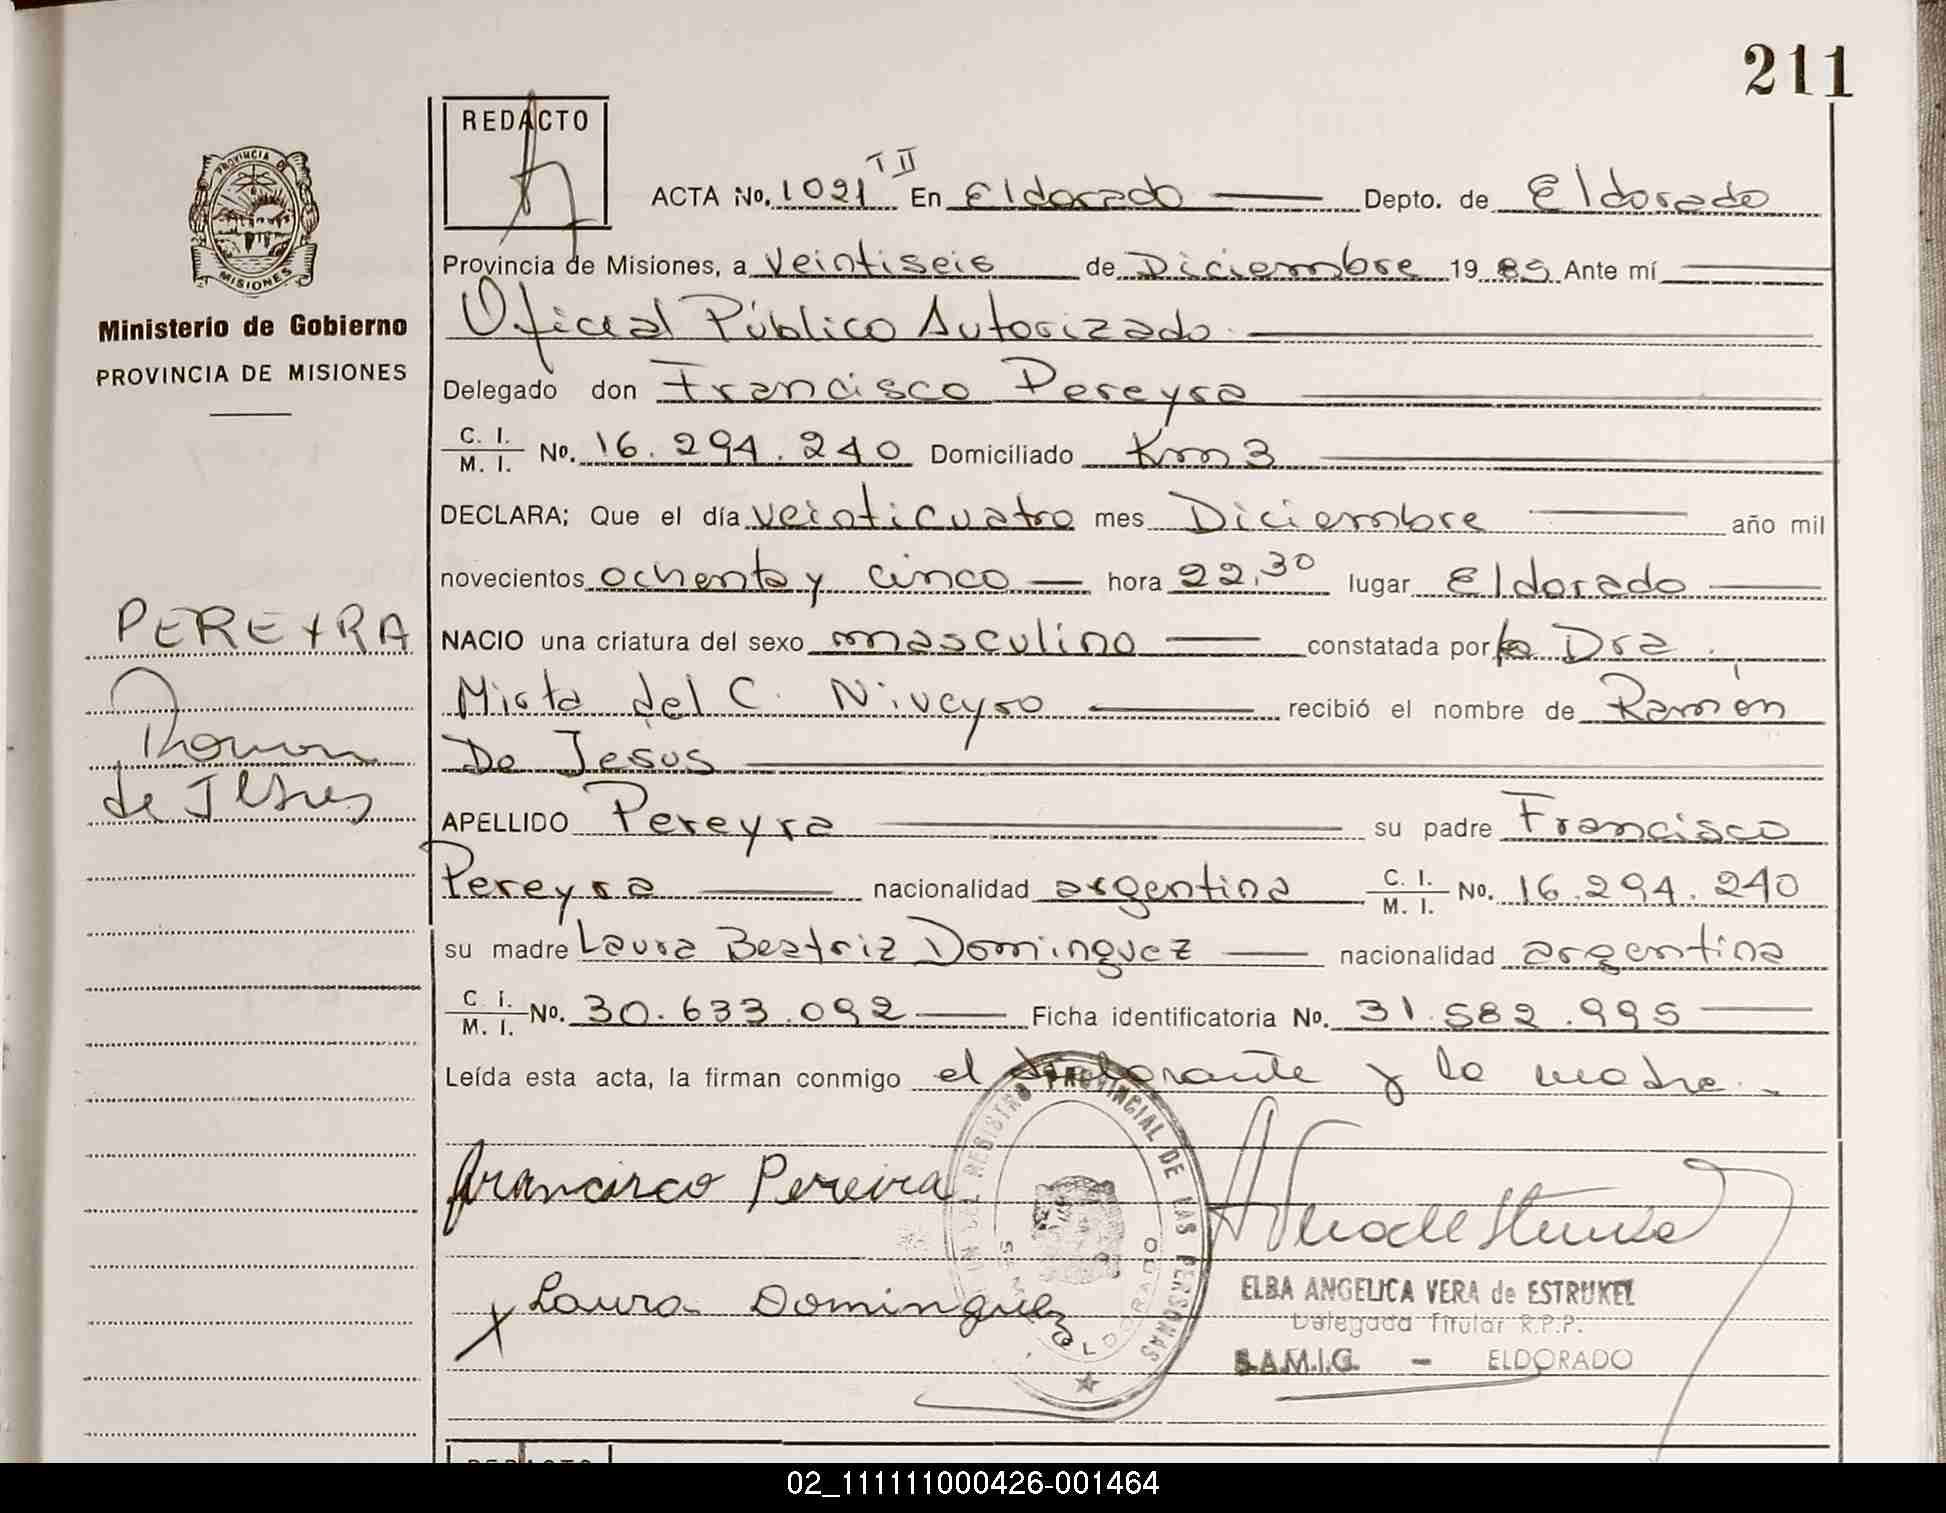 211
REDACTO
PROVINCIA DE
MISIONES
Ministerio de Gobierno
PROVINCIA DE MISIONES
ACTA No. 1021 T II En Eldorado Depto. de Eldorado
Provincia de Misiones, a veintiseis de Diciembre 19 85 Ante mí
Oficial Público Autorizado
Delegado don Francisco Pereyra
C. I. / M. I. No. 16.294.240 Domiciliado Km 3
DECLARA; Que el día veinticuatro mes Diciembre año mil
novecientos ochenta y cinco hora 22,30 lugar Eldorado
PEREYRA
NACIO una criatura del sexo masculino constatada por la Dra.
del C. Niveyro recibió el nombre de Ramón
Ramon
De Jesus
de Jesus
APELLIDO Pereyra su padre Francisco
Pereyra nacionalidad argentina C. I. / M. I. No. 16.294.240
su madre Laura Beatriz Dominguez nacionalidad argentina
C. I. / M. I. No. 30.633.092 Ficha identificatoria No. 31.582.995
Leída esta acta, la firman conmigo el declarante y la madre.
Francisco Pereira
DEL REGISTRO PROVINCIAL DE LAS PERSONAS
ELDORADO
X Laura Dominguez
ELBA ANGELICA VERA de ESTRUKEL
Delegada Titular R.P.P.
S.A.M.I.G. - ELDORADO
REDACTO
02_111111000426-001464